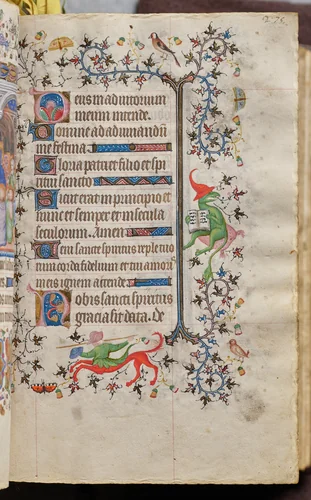 Deus in adiutorium
meum intende.
Domine ad adiuuandum
me festina.
Gloria patri et filio et spi
ritui sancto
Sicut erat in principio et
nunc et semper et in secula
seculorum. Amen
Veni sancte spiritus reple tuo
rum corda fidelium et tui amo
ris ignem accende
Nobis sancti spiritus
gracia sit data. de